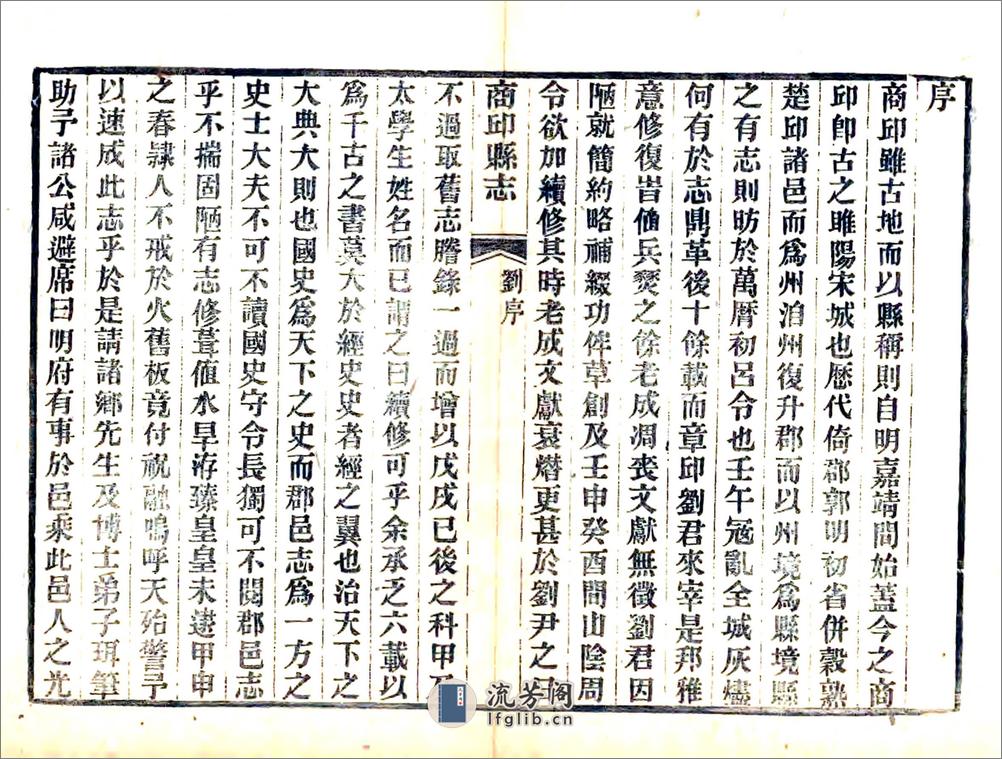 序
商邱雖古地而以縣稱則自明嘉靖間始蓋今之商
邱卽古之睢陽宋城也歷代倚郡郭明初省併穀熟
楚邱諸邑而爲州洎州復升郡而以州境爲縣境縣
之有志則昉於萬曆初呂令也壬午冦亂全城灰燼
何有於志鼎革後十餘載而章邱劉君來宰是邦雅
意修復旹値兵燹之餘老成凋丧文獻無徵劉君因
陋就簡約略補綴功侔草創及壬申癸酉間山陰周
令欲加續修其時老成文獻衰熸更甚於劉尹之日
商邱縣志
劉序
不過取舊志謄錄一過而增以戊戌已後之科甲及
太學生姓名而已謂之曰續修可乎余承乏六載以
爲千古之書莫大於經史史者經之翼也治天下之
大典大則也國史爲天下之史而郡邑志爲一方之
史士大夫不可不讀國史守令長獨可不閱郡邑志
乎不揣固陋有志修葺値水旱洊臻皇皇未遑甲申
之春隷人不戒於火舊板竟付祝融嗚呼天殆警予
以速成此志乎於是請諸鄉先生及博士弟子珥筆
助予諸公咸避席曰明府有事於邑乘此邑人之光
流芳阁
lfglib.cn